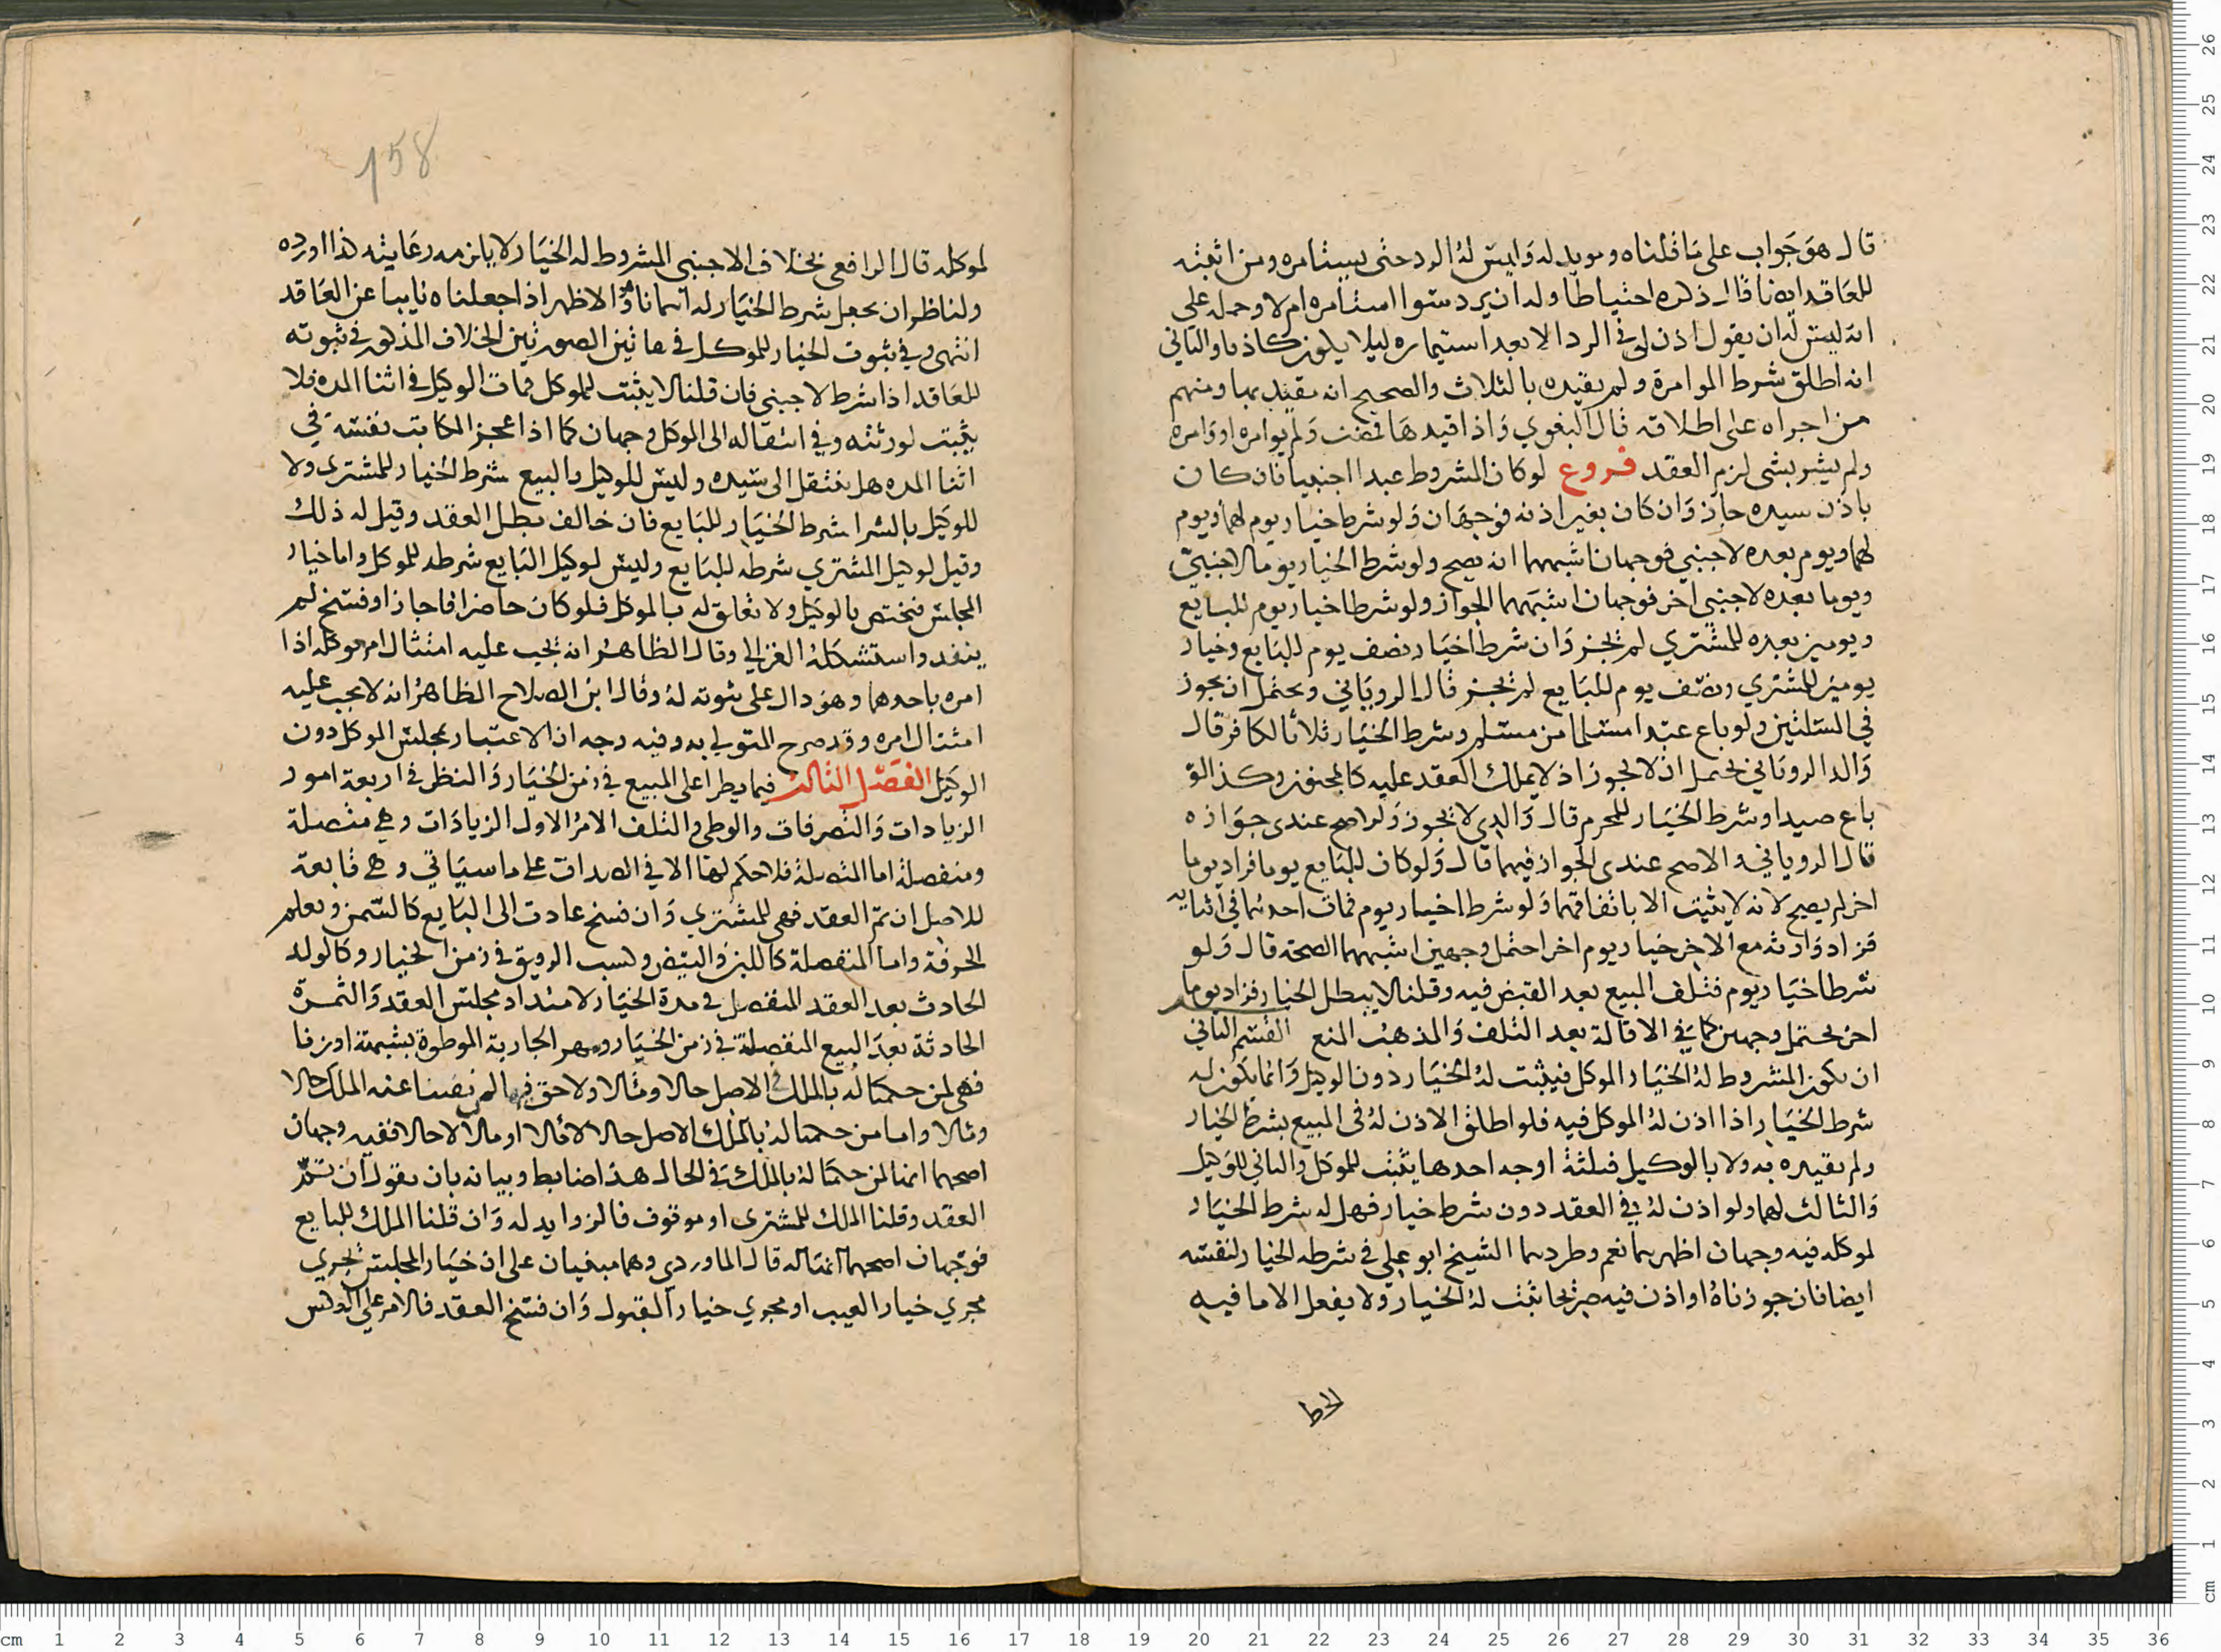 قال هو جواب على ما قلناه ومويد له وليس له الرد حتى يستامره ومن اثبته
للعاقد ايه نا قال ذكره احتياطا وله ان يرد سوا استامره ام لا وحمله على
انه ليس له ان يقول اذن لى فى الرد الا بعد استيماره ليلا يكون كاذبا والثانى
انه اطلق شرط الموامرة ولم يقيده بالثلاث والصحيح انه مقيد بها ومنهم
من اجراه على اطلاقه قال البغوي واذا قيدها فمضت ولم يوامره او وامره
ولم يشر بشى لزم العقد فروع لو كان المشروط عبدا اجنبيا فان كان
باذن سيده جاز وان كان بغير اذنه فوجهان ولو شرط خيار يوم لهما ويوم
لهما ويوم بعده لاجنبي فوجهان اشبههما انه يصح ولو شرط الخيار يوما لاجنبي
ويوما بعده لاجنبي اخر فوجهان اشبههما الجواز ولو شرطا خيار يوم للبايع
ويومين بعده للمشتري لم يجز وان شرطا خيار نصف يوم للبايع وخيار
يومين للمشتري ونصف يوم للبايع لم يجز قال الرويانى ويحتمل ان يجوز
في المسلتين ولو باع عبدا مسلما من مسلم وشرط الخيار ثلاثا لكافر قال
والد الرويانى يحتمل ان لا يجوز اذ لا يملك العقد عليه كالمجنون وكذا لو
باع صيدا وشرط الخيار للمحرم قال والدي لا يجوز ولم اصح عندى جوازه
قال الرويانى والاصح عندى الجواز فيهما قال ولو كان للبايع يوما فزاد يوما
اخر لم يصح لانه لا يثبت الا باتفاقهما ولو شرطا خيار يوم فمات احدهما فى اثنايه
فزاد وارثه مع الاخر خيار يوم اخر احتمل وجهين اشبههما الصحة قال ولو
شرطا خيار يوم فتلف المبيع بعد القبض فيه وقلنا لا يبطل الخيار فزاد يوما
اخر يحتمل وجهين كما فى الاقالة بعد التلف والمذهب المنع القسم الثانى
ان يكون المشروط له الخيار الموكل فيثبت له الخيار دون الوكيل وانما يكون له
شرط الخيار اذا اذن له الموكل فيه فلو اطلق الاذن له فى المبيع بشرط الخيار
ولم يقيده به ولا بالوكيل فثلثة اوجه احدها يثبت للموكل والثانى للوكيل
والثالث لهما ولو اذن له في العقد دون شرط خيار فهل له شرط الخيار
لموكله فيه وجهان اظهرهما نعم وطردهما الشيخ ابو على فى شرطه الخيار لنفسه
ايضا فان جوزناه او اذن فيه صريحا ثبت له الخيار ولا يفعل الا ما فيه
158
لموكله قال الرافعى بخلاف الاجنبى المشروط له الخيار لا يلزمه رعايته هذا اورده
ولناظر ان يجعل شرط الخيار له ايتمانا وهو الاظهر اذا جعلناه نايبا عن العاقد
انتهى وفي ثبوت الخيار للموكل فى هاتين الصورتين الخلاف المذكور فى ثبوته
للعاقد اذا شرط لاجنبى فان قلنا لا يثبت للموكل فمات الوكيل فى اثنا المده فلا
يثبت لورثته وفي انتقاله الى الموكل وجهان كما اذا عجز المكاتب نفسه في
اثنا المده هل ينتقل الى سيده وليس للوكيل والبيع شرط الخيار للمشترى ولا
للوكيل بالشرا شرط الخيار للبايع فان خالف بطل العقد وقيل له ذلك
وقيل لوكيل المشتري شرطه للبايع وليس لوكيل البايع شرطه للموكل واما خيار
المجلس فيختص بالوكيل ولا تعلق له بالموكل فلو كان حاضرا فاجاز او فسخ لم
ينفد واستشكله الغزالى وقال الظاهر انه يجب عليه امتثال امر موكله اذا
امره باحدهما وهو دال على ثبوته له وقال ابن الصلاح الظاهر انه لا يجب عليه
امتثال امره وقد صرح المتولى به وفيه وجه ان الاعتبار بمجلس الموكل دون
الوكيل الفصل الثالث فيما يطرا على المبيع فى زمن الخيار والنظر فى اربعة امور
الزيادات والتصرفات والوطى والتلف الامر الاول الزيادات وهى متصلة
ومنفصلة اما المتصلة فلا حكم لها الا في الصداق على ما سياتي وهى تابعة
للاصل ان تم العقد فهى للمشتري وان فسخ عادت الى البايع كالسمن وتعلم
الحرفة واما المنفصلة كاللبن والبيض وكسب الرقيق فى زمن الخيار وكالولد
الحادث بعد العقد المنفصل فى مدة الخيار لامتداد مجلس العقد والثمرة
الحادثة بعد البيع المنفصلة فى زمن الخيار ومهر الجارية الموطوة بشبهة او زنا
فهى لمن حكمنا له بالملك فى الاصل حالا ومالا ولا حق فيها لمن نفينا عنه الملك حالا
ومالا واما من حكمنا له بالملك الاصل حالا لا مالا او مالا لا حالا ففيه وجهان
اصحهما انها لمن حكمنا له بالملك فى الحال هذا ضابط وبيانه بان نقول ان تم
العقد وقلنا الملك للمشترى او موقوف فالزوايد له وان قلنا الملك للبايع
فوجهان اصحهما انها له قال الماوردي وهما مبنيان على ان خيار المجلس يجري
مجري خيار العيب او مجري خيار القبول وان فسخ العقد فالامر على العكس